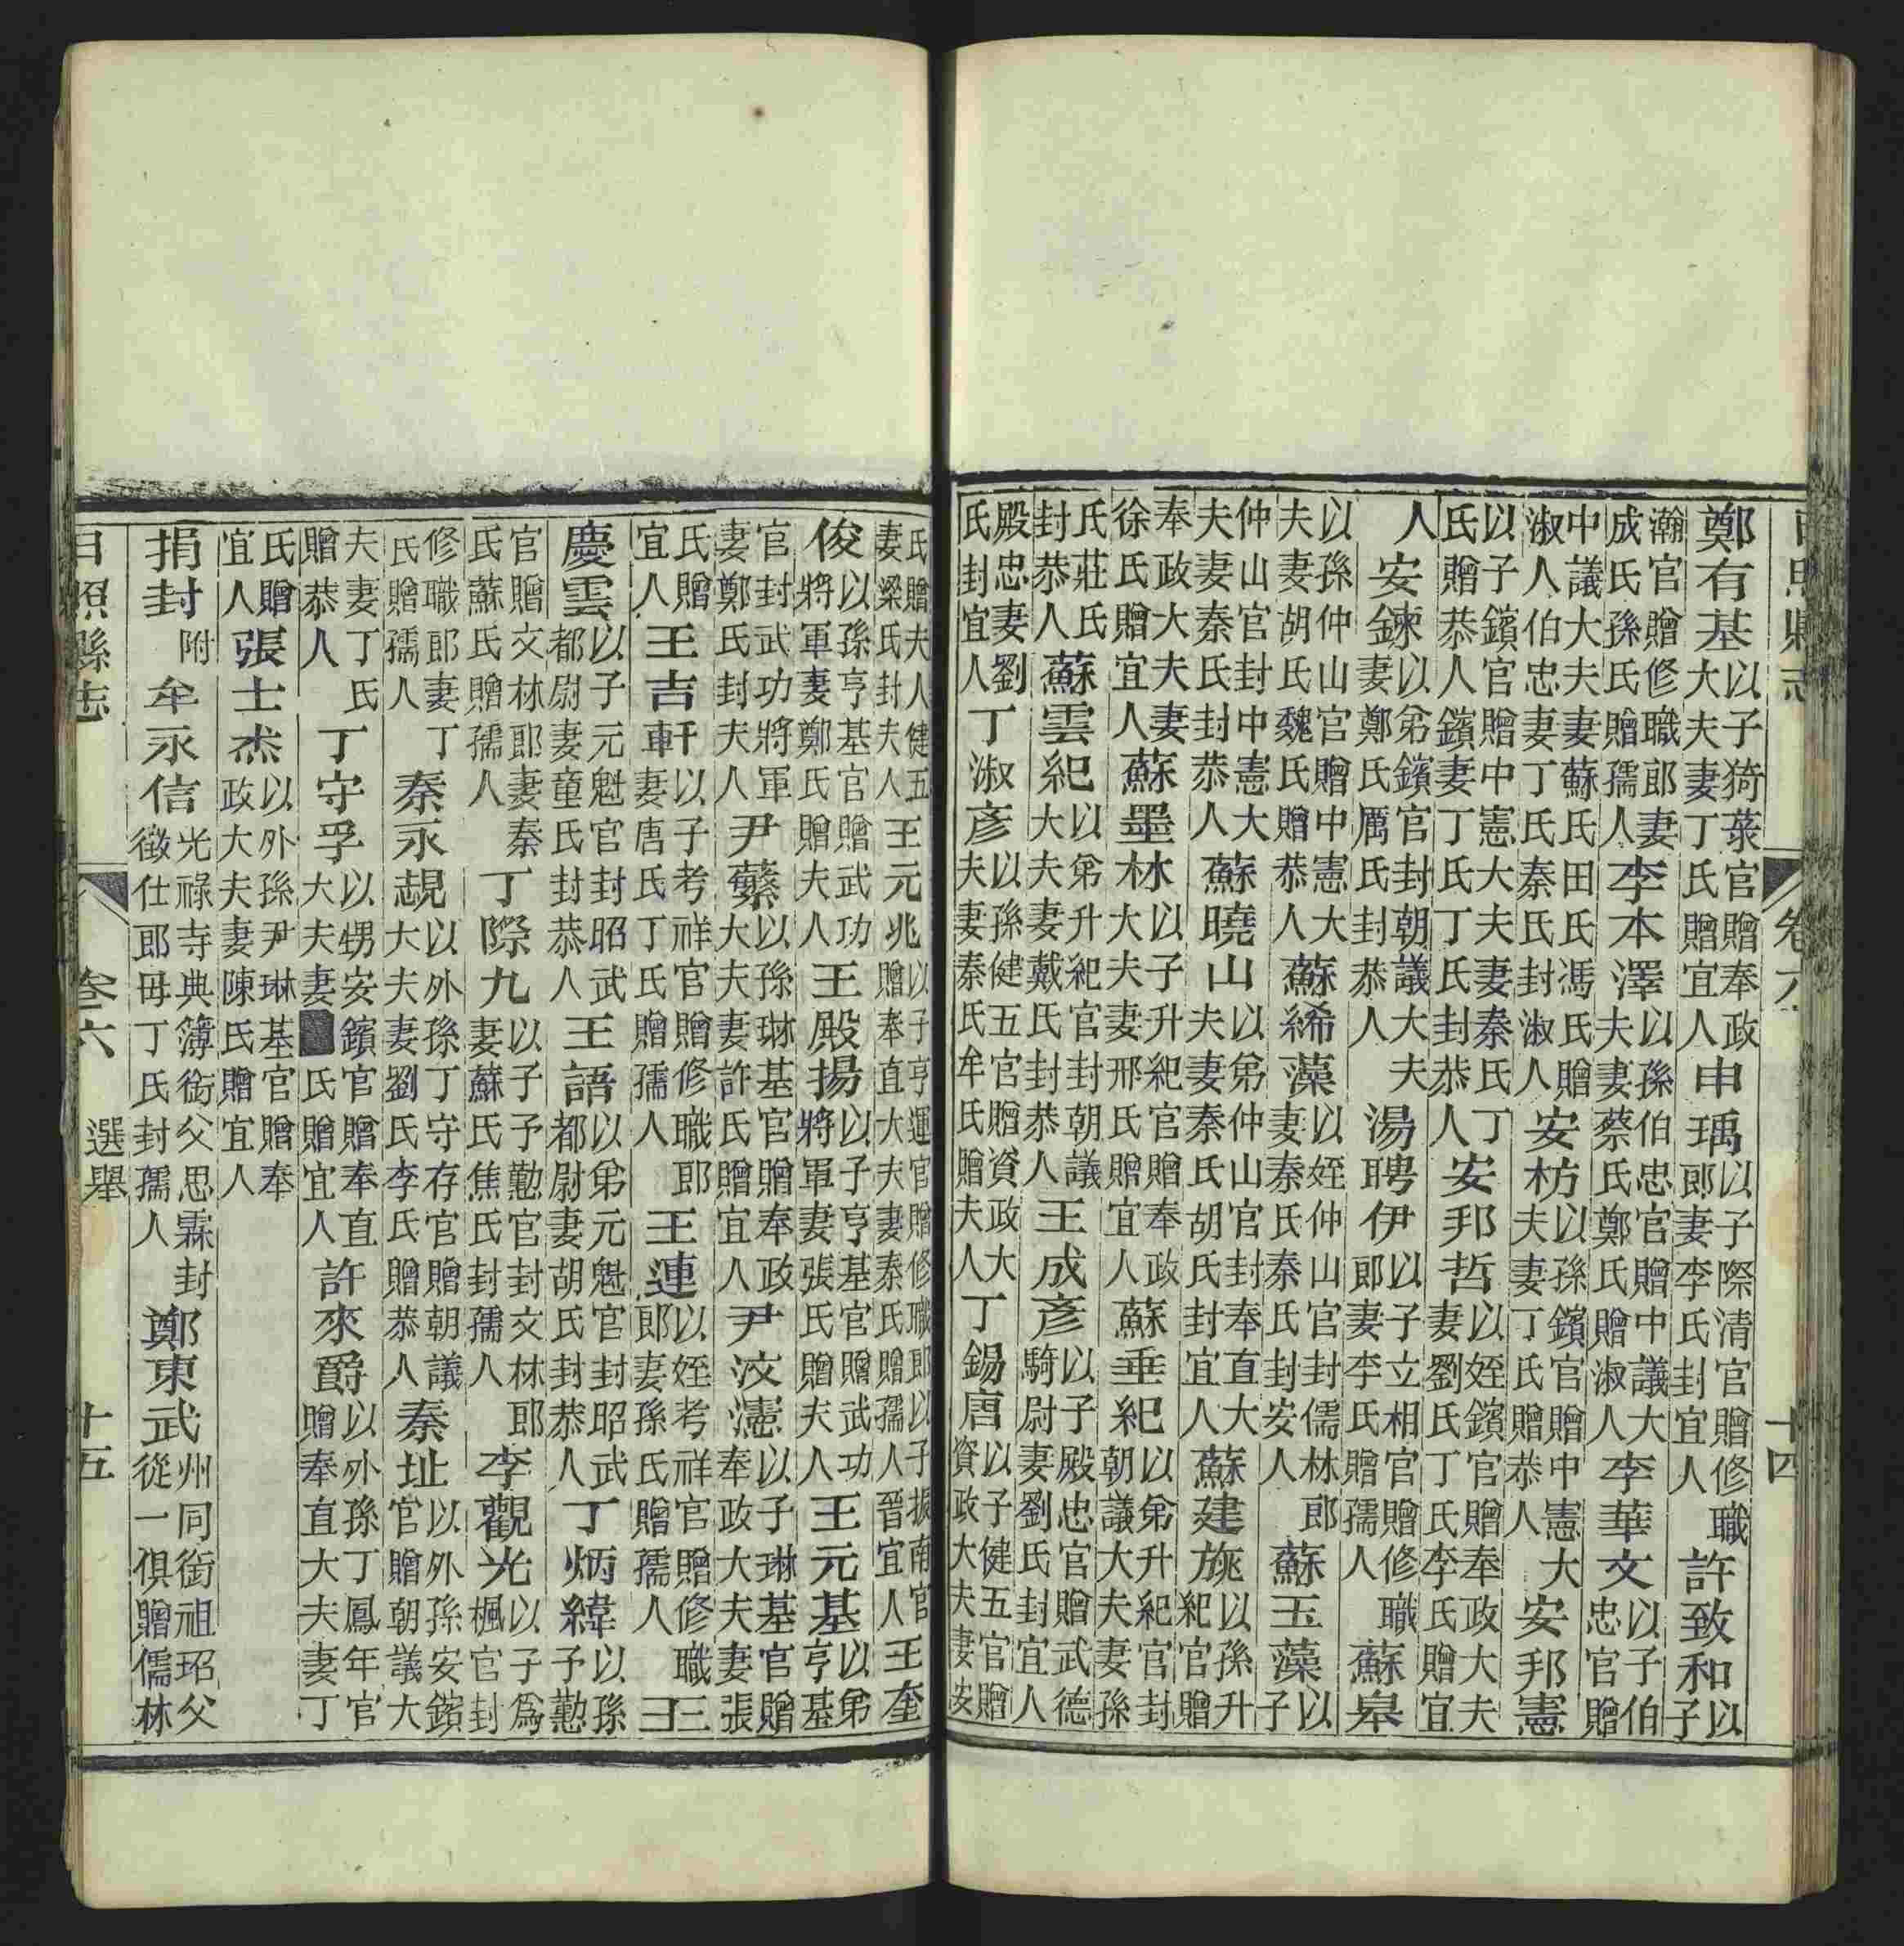 日照縣志 卷六 十四
鄭有基以子猗菉官贈奉政大夫妻丁氏贈宜人申瑀以子際清官贈修職郎妻李氏封宜人許致和以子
瀚官贈修職郎妻成氏孫氏贈孺人李本澤以孫伯忠官贈中議大夫妻蔡氏鄭氏贈淑人李華文以子伯忠官贈
中議大夫妻蘇氏田氏馮氏贈淑人伯忠妻丁氏秦氏封淑人安枋以孫鑌官贈中憲大夫妻丁氏贈恭人安邦憲
以子鑌官贈中憲大夫妻秦氏丁氏贈恭人鑌妻丁氏丁氏封恭人安邦哲以姪鑌官贈奉政大夫妻劉氏丁氏李氏贈宜
人安鍊以弟鑌官封朝議大夫妻鄭氏厲氏封恭人湯聘伊以子立相官贈修職郎妻李氏贈孺人蘇皋
以孫仲山官贈中憲大夫妻胡氏魏氏贈恭人蘇絺藻以姪仲山官封儒林郎妻秦氏秦氏封安人蘇玉藻以子
仲山官封中憲大夫妻秦氏封恭人蘇曉山以弟仲山官封奉直大夫妻秦氏胡氏封宜人蘇建旐以孫升紀官贈
奉政大夫妻徐氏贈宜人蘇墨林以子升紀官贈奉政大夫妻邢氏贈宜人蘇垂紀以弟升紀官封朝議大夫妻孫
氏莊氏封恭人蘇雲紀以弟升紀官封朝議大夫妻戴氏封恭人王成彥以子殿忠官贈武德騎尉妻劉氏封宜人
殿忠妻劉氏封宜人丁淑彥以孫健五官贈資政大夫妻秦氏牟氏贈夫人丁錫唐以子健五官贈資政大夫妻安
氏贈夫人健五妻梁氏封夫人王元兆以子亨運官贈修職郎以子振南官贈奉直大夫妻秦氏贈孺人晉宜人王奎
俊以孫亨基官贈武功將軍妻鄭氏贈夫人王殿揚以子亨基官贈武功將軍妻張氏贈夫人王元基以弟亨基
官封武功將軍妻鄭氏封夫人尹蘩以孫琳基官贈奉政大夫妻許氏贈宜人尹汶瀗以子琳基官贈奉政大夫妻張
氏贈宜人王吉軒以子考祥官贈修職郎妻唐氏丁氏贈孺人王連以姪考祥官贈修職郎妻孫氏贈孺人王
慶雲以子元魁官封昭武都尉妻童氏封恭人王語以弟元魁官封昭武都尉妻胡氏封恭人丁炳緯以孫予懃
官贈文林郎妻秦氏蘇氏贈孺人丁際九以子予懃官封文林郎妻蘇氏焦氏封孺人李觀光以子為楓官封
修職郎妻丁氏贈孺人秦永覟以外孫丁守存官贈朝議大夫妻劉氏李氏贈恭人秦址以外孫安鑌官贈朝議大
夫妻丁氏贈恭人丁守孚以甥安鑌官贈奉直大夫妻氏贈宜人許來爵以外孫丁鳳年官贈奉直大夫妻丁
氏贈宜人張士杰以外孫尹琳基官贈奉政大夫妻陳氏贈宜人
捐封附牟永信光祿寺典簿銜父思霖封徵仕郎毋丁氏封孺人鄭東武州同銜祖玿父從一俱贈儒林
日照縣志 卷六 選舉 十五